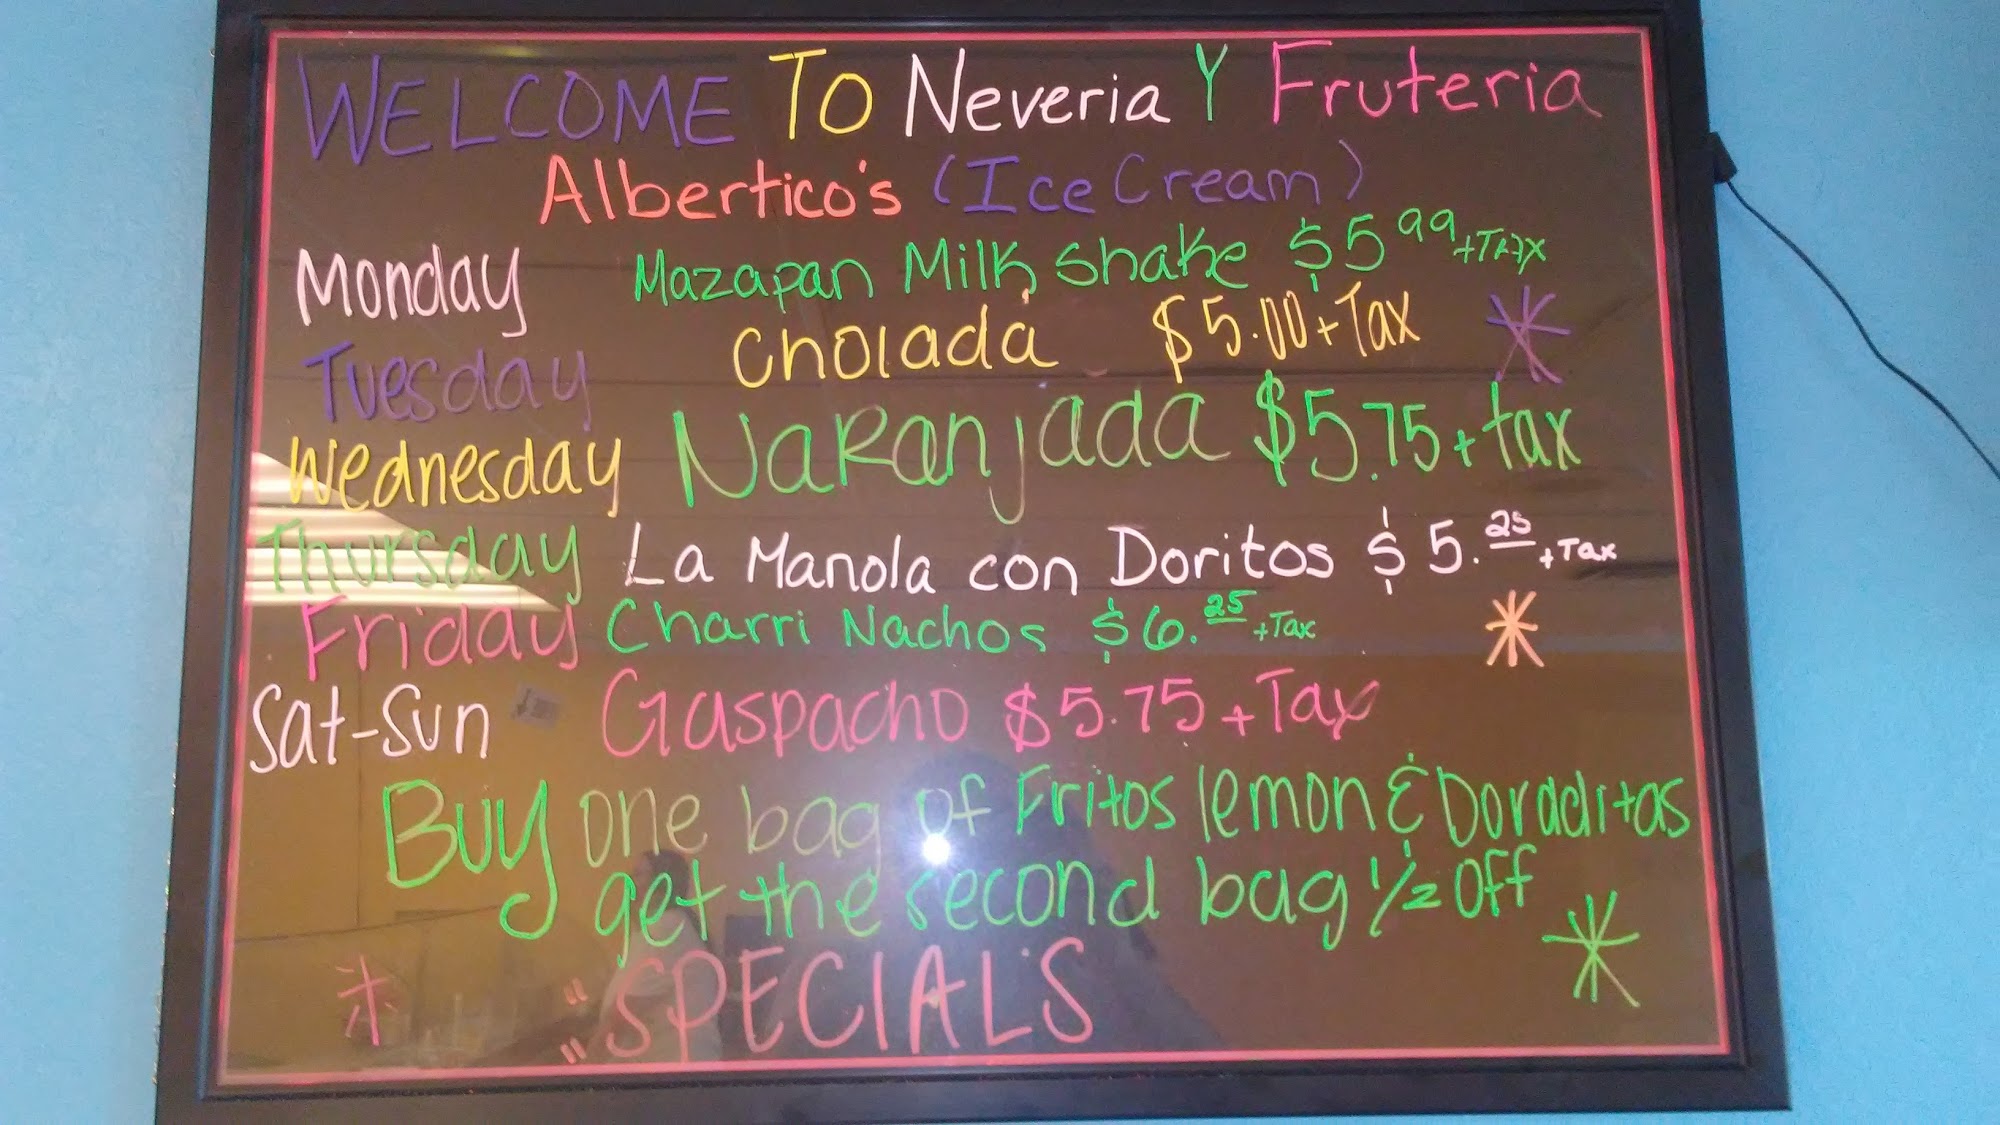 WELCOME TO Neveria Y Fruteria
Albertico's (Ice Cream)
Monday Mazapan Milk Shake $5 99 +TAX
Tuesday Cholada $5.00 + Tax
Wednesday NaRanjada $5.75 + tax
Thursday La Manola con Doritos $5.25 + Tax
Friday Charri Nachos $6.25 + Tax
Sat-Sun Gaspacho $5.75 + Tax
Buy one bag of Fritos lemon & Doraditas
get the second bag 1/2 Off
"SPECIALS